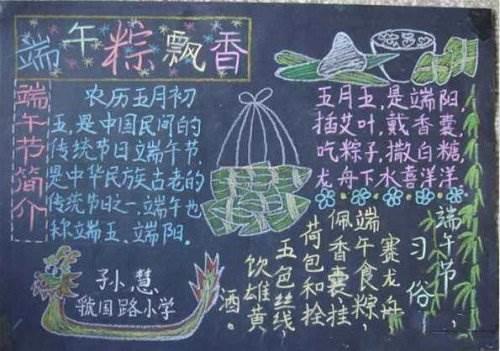 端午粽飘香
端午节简介
农历五月初
五,是中国民间的
传统节日端午节,
是中华民族古老的
传统节日之一。端午也
称端五、端阳。
五月五,是端阳,
插艾叶,戴香囊,
吃粽子,撒白糖,
龙舟下水喜洋洋
端午节
习俗
赛龙舟、
端午食粽,
佩香囊、挂
荷包和拴
五色丝线,
饮雄黄
酒。
孙慧
虢国路小学